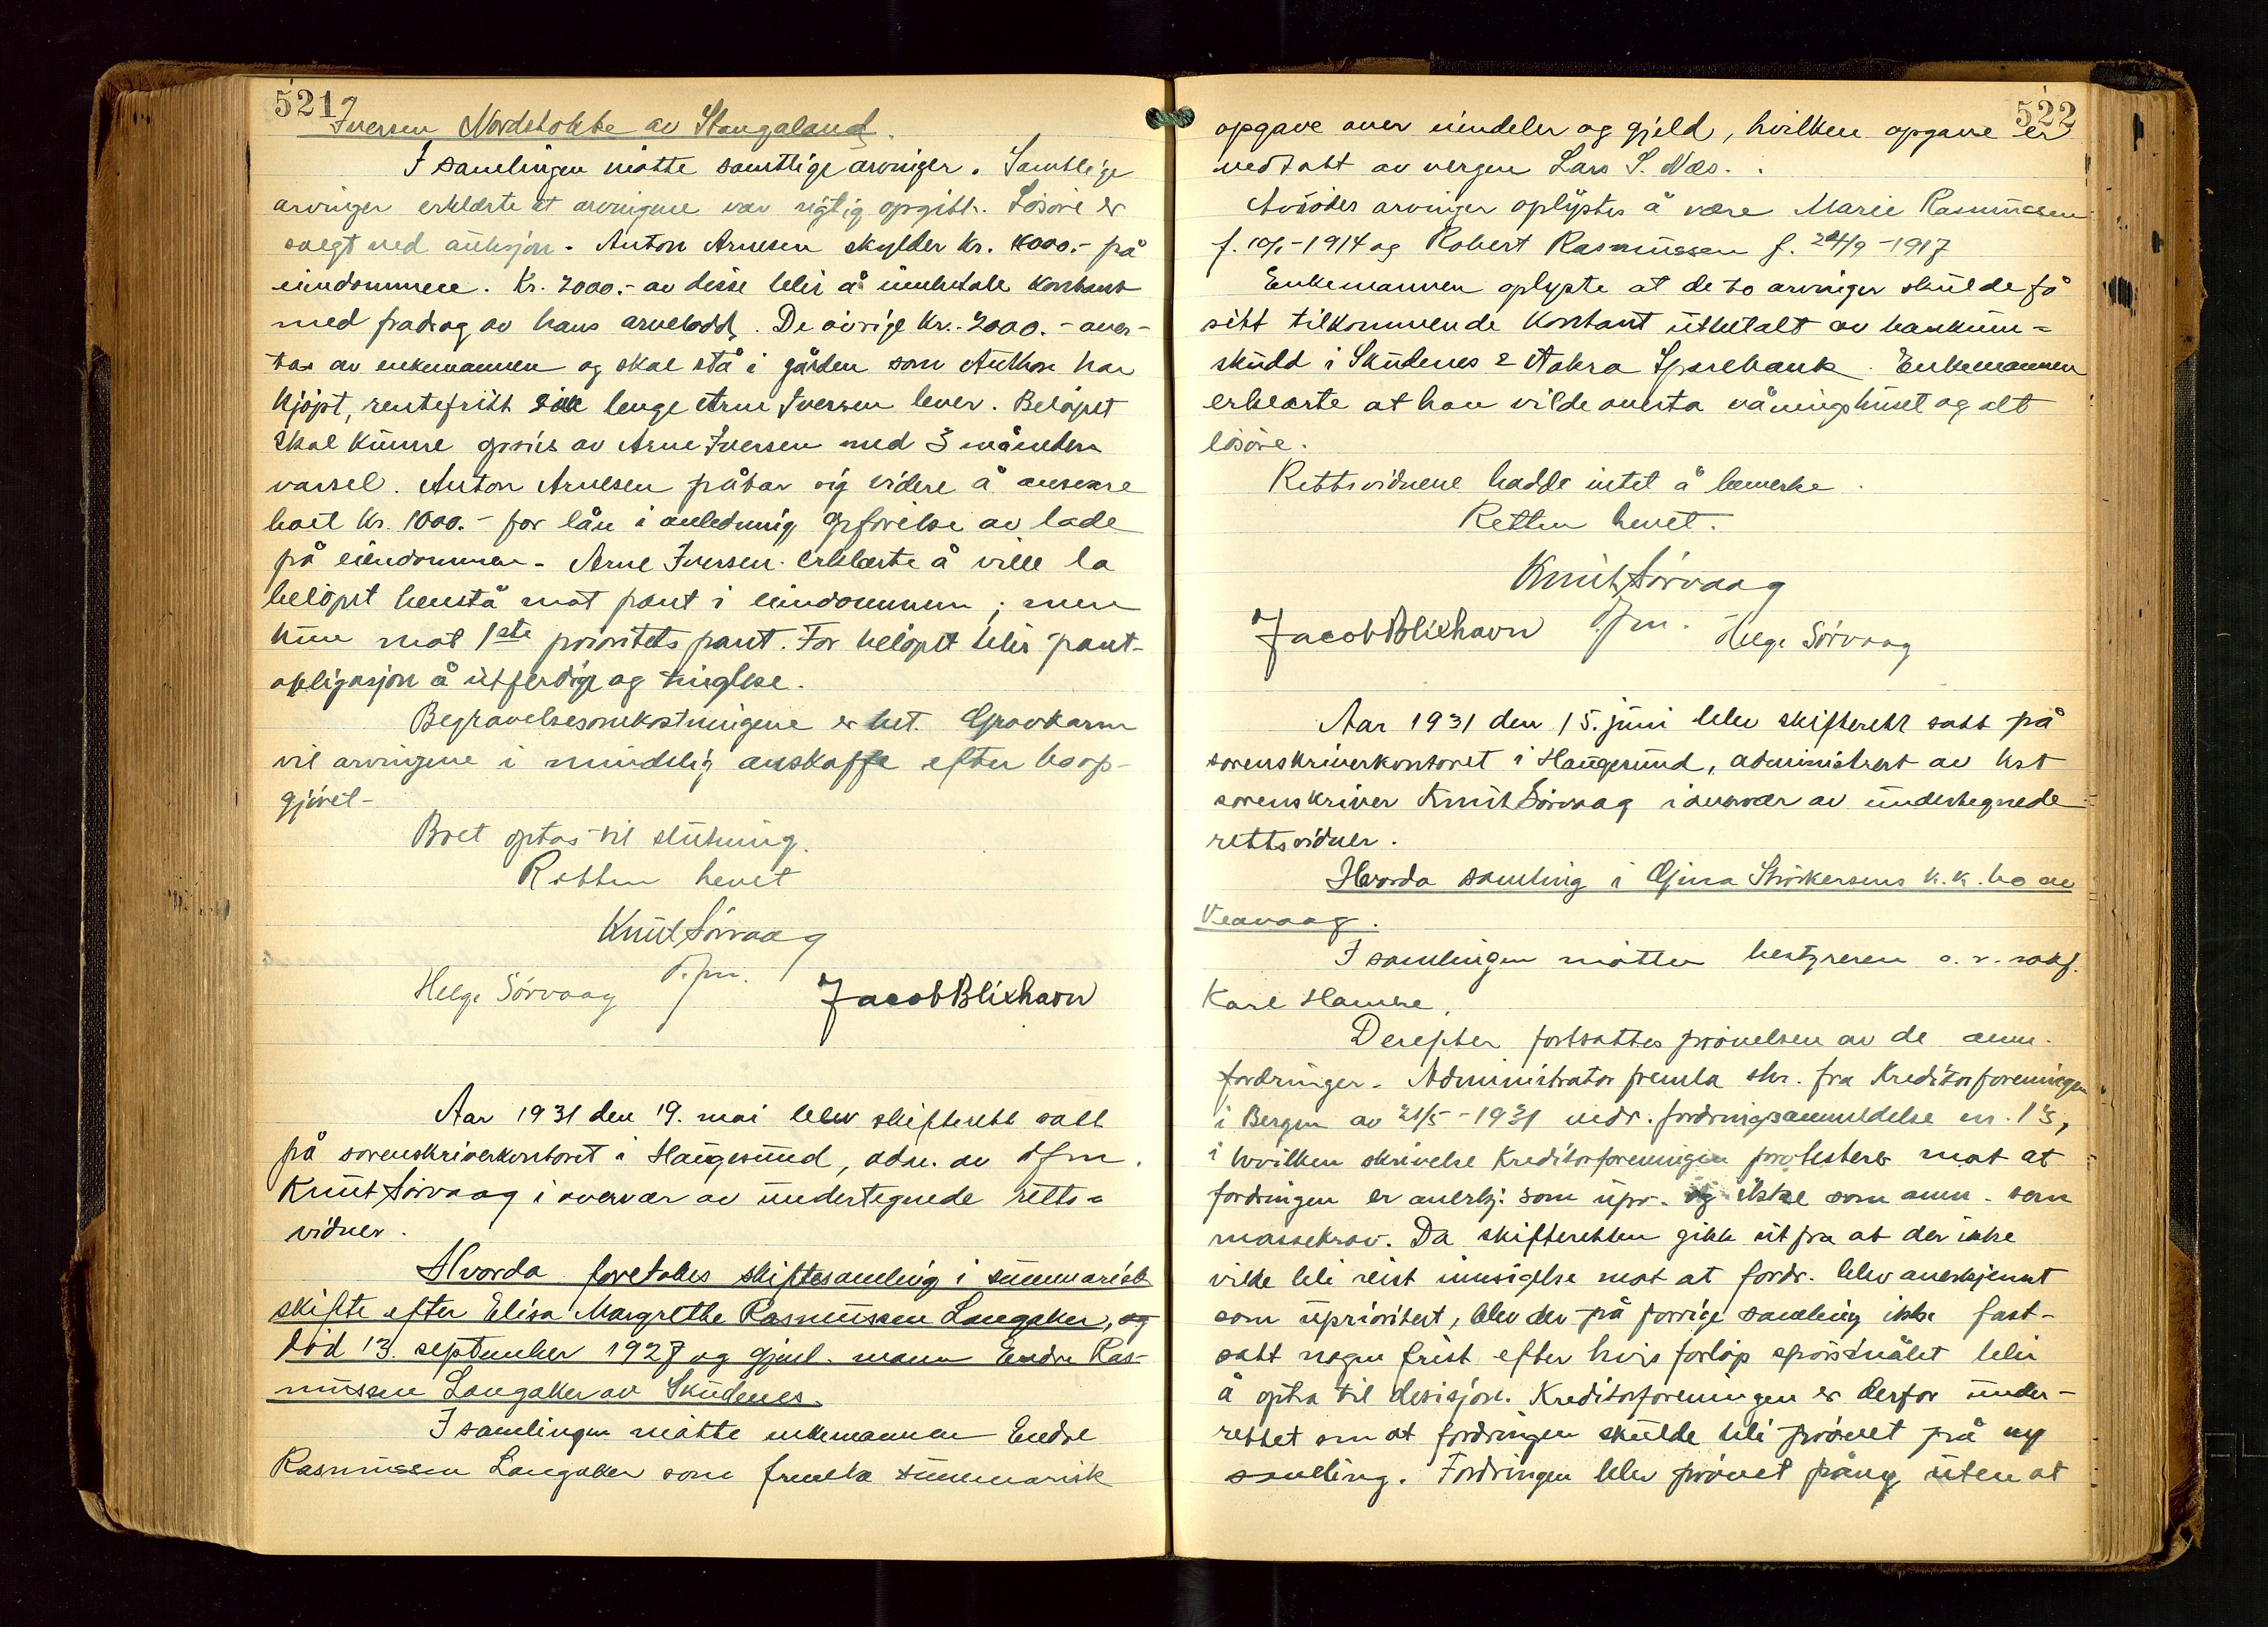 521
Iversen Nordstokke av Stangaland.
I samlingen møtte samtlige arvinger. Samtlige
arvinger erklærte at arvingene var rigtig opgitt. Løsøre er
solgt ved auksjon. Anton Arnesen skylder kr. 4000.- på
eiendommen. Kr. 2000.- av disse blir å innbetale kontant
med fradrag av hans arvelodd. De øvrige kr. 2000.- over-
tas av enkemannen og skal stå i gården som Anthon har
kjøpt, rentefritt så lenge Arne Iversen lever. Beløpet
skal kunne opsies av Arne Iversen med 3 måneders
varsel. Anton Arnesen påtar sig videre å ansvare
boet kr. 1000.- for lån i anledning opførelse av lade
på eiendommen. Arne Iversen erklærte å ville la
beløpet henstå mot pant i eiendommen; men
kun mot 1ste prioritets pant. For beløpet blir pant-
obligasjon å utferdige og tinglese.
Begravelsesomkostningene er bet. Gravkarm
vil arvingene i mindelig anskaffe efter boop-
gjøret-
Boet optas til slutning.
Retten hevet
Knut Sørvaag
d.fm.
Helge Sørvaag Jacob Blixhavn
Aar 1931 den 19. mai blev skifterett satt
på sorenskriverkontoret i Haugesund, adm. av dfm.
Knut Sørvaag i overvær av undertegnede retts-
vidner.
Hvorda foretokes skiftesamling i summarisk
skifte efter Elisa Margrethe Rasmussen Langaker, og
død 13. september 1927 og gjenl. mann Endre Ras-
mussen Langaker av Skudenes.
I samlingen møtte enkemannen Endre
Rasmussen Langaker som fremla summarisk
522
opgave over eiendeler og gjeld, hvilken opgave er
vedtatt av vergen Lars S. Næs.
Avdødes arvinger oplystes å være Marie Rasmussen
f. 10/1-1914 og Robert Rasmussen f. 24/9-1917
Enkemannen oplyste at de to arvinger skulde få
sitt tilkommende kontant utbetalt av bankinn-
skudd i Skudenes & Aakra Sparebank. Enkemannen
erklærte at han vilde overta våningshuset og alt
løsøre.
Rettsvidnene hadde intet å bemerke.
Retten hevet.
Knut Sørvaag
d.fm.
Jacob Blixhavn Helge Sørvaag
Aar 1931 den 15. juni blev skifterett satt på
sorenskriverkontoret i Haugesund, administrert av bst
sorenskriver Knut Sørvaag i overvær av undertegnede
rettsvidner.
Hvorda samling i Gina Størkersens k.k. bo av
Veavaag.
I samlingen møtte bestyreren o.r.sakf.
Karl Hamre.
Derefter fortsattes prøvelsen av de anm.
fordringer. Administrator fremla skr. fra Kreditorforeningen
i Bergen av 21/5-1931 vedr. fordringsanmeldelse nr. 13,
i hvilken skrivelse Kreditorforeningen protesterer mot at
fordringen er anerkj. som upr. og ikke som anm. som
massekrav. Da skifteretten gikk ut fra at der ikke
vilde bli reist innsigelse mot at fordr. blev anerkjennt
som uprioritert, blev der på forrige samling ikke fast-
satt nogen frist efter hvis forløp spørsmålet blir
å opta til desisjon. Kreditorforeningen er derfor under-
rettet om at fordringen skulde bli prøvet på ny
samling. Fordringen blev prøvet påny uten at